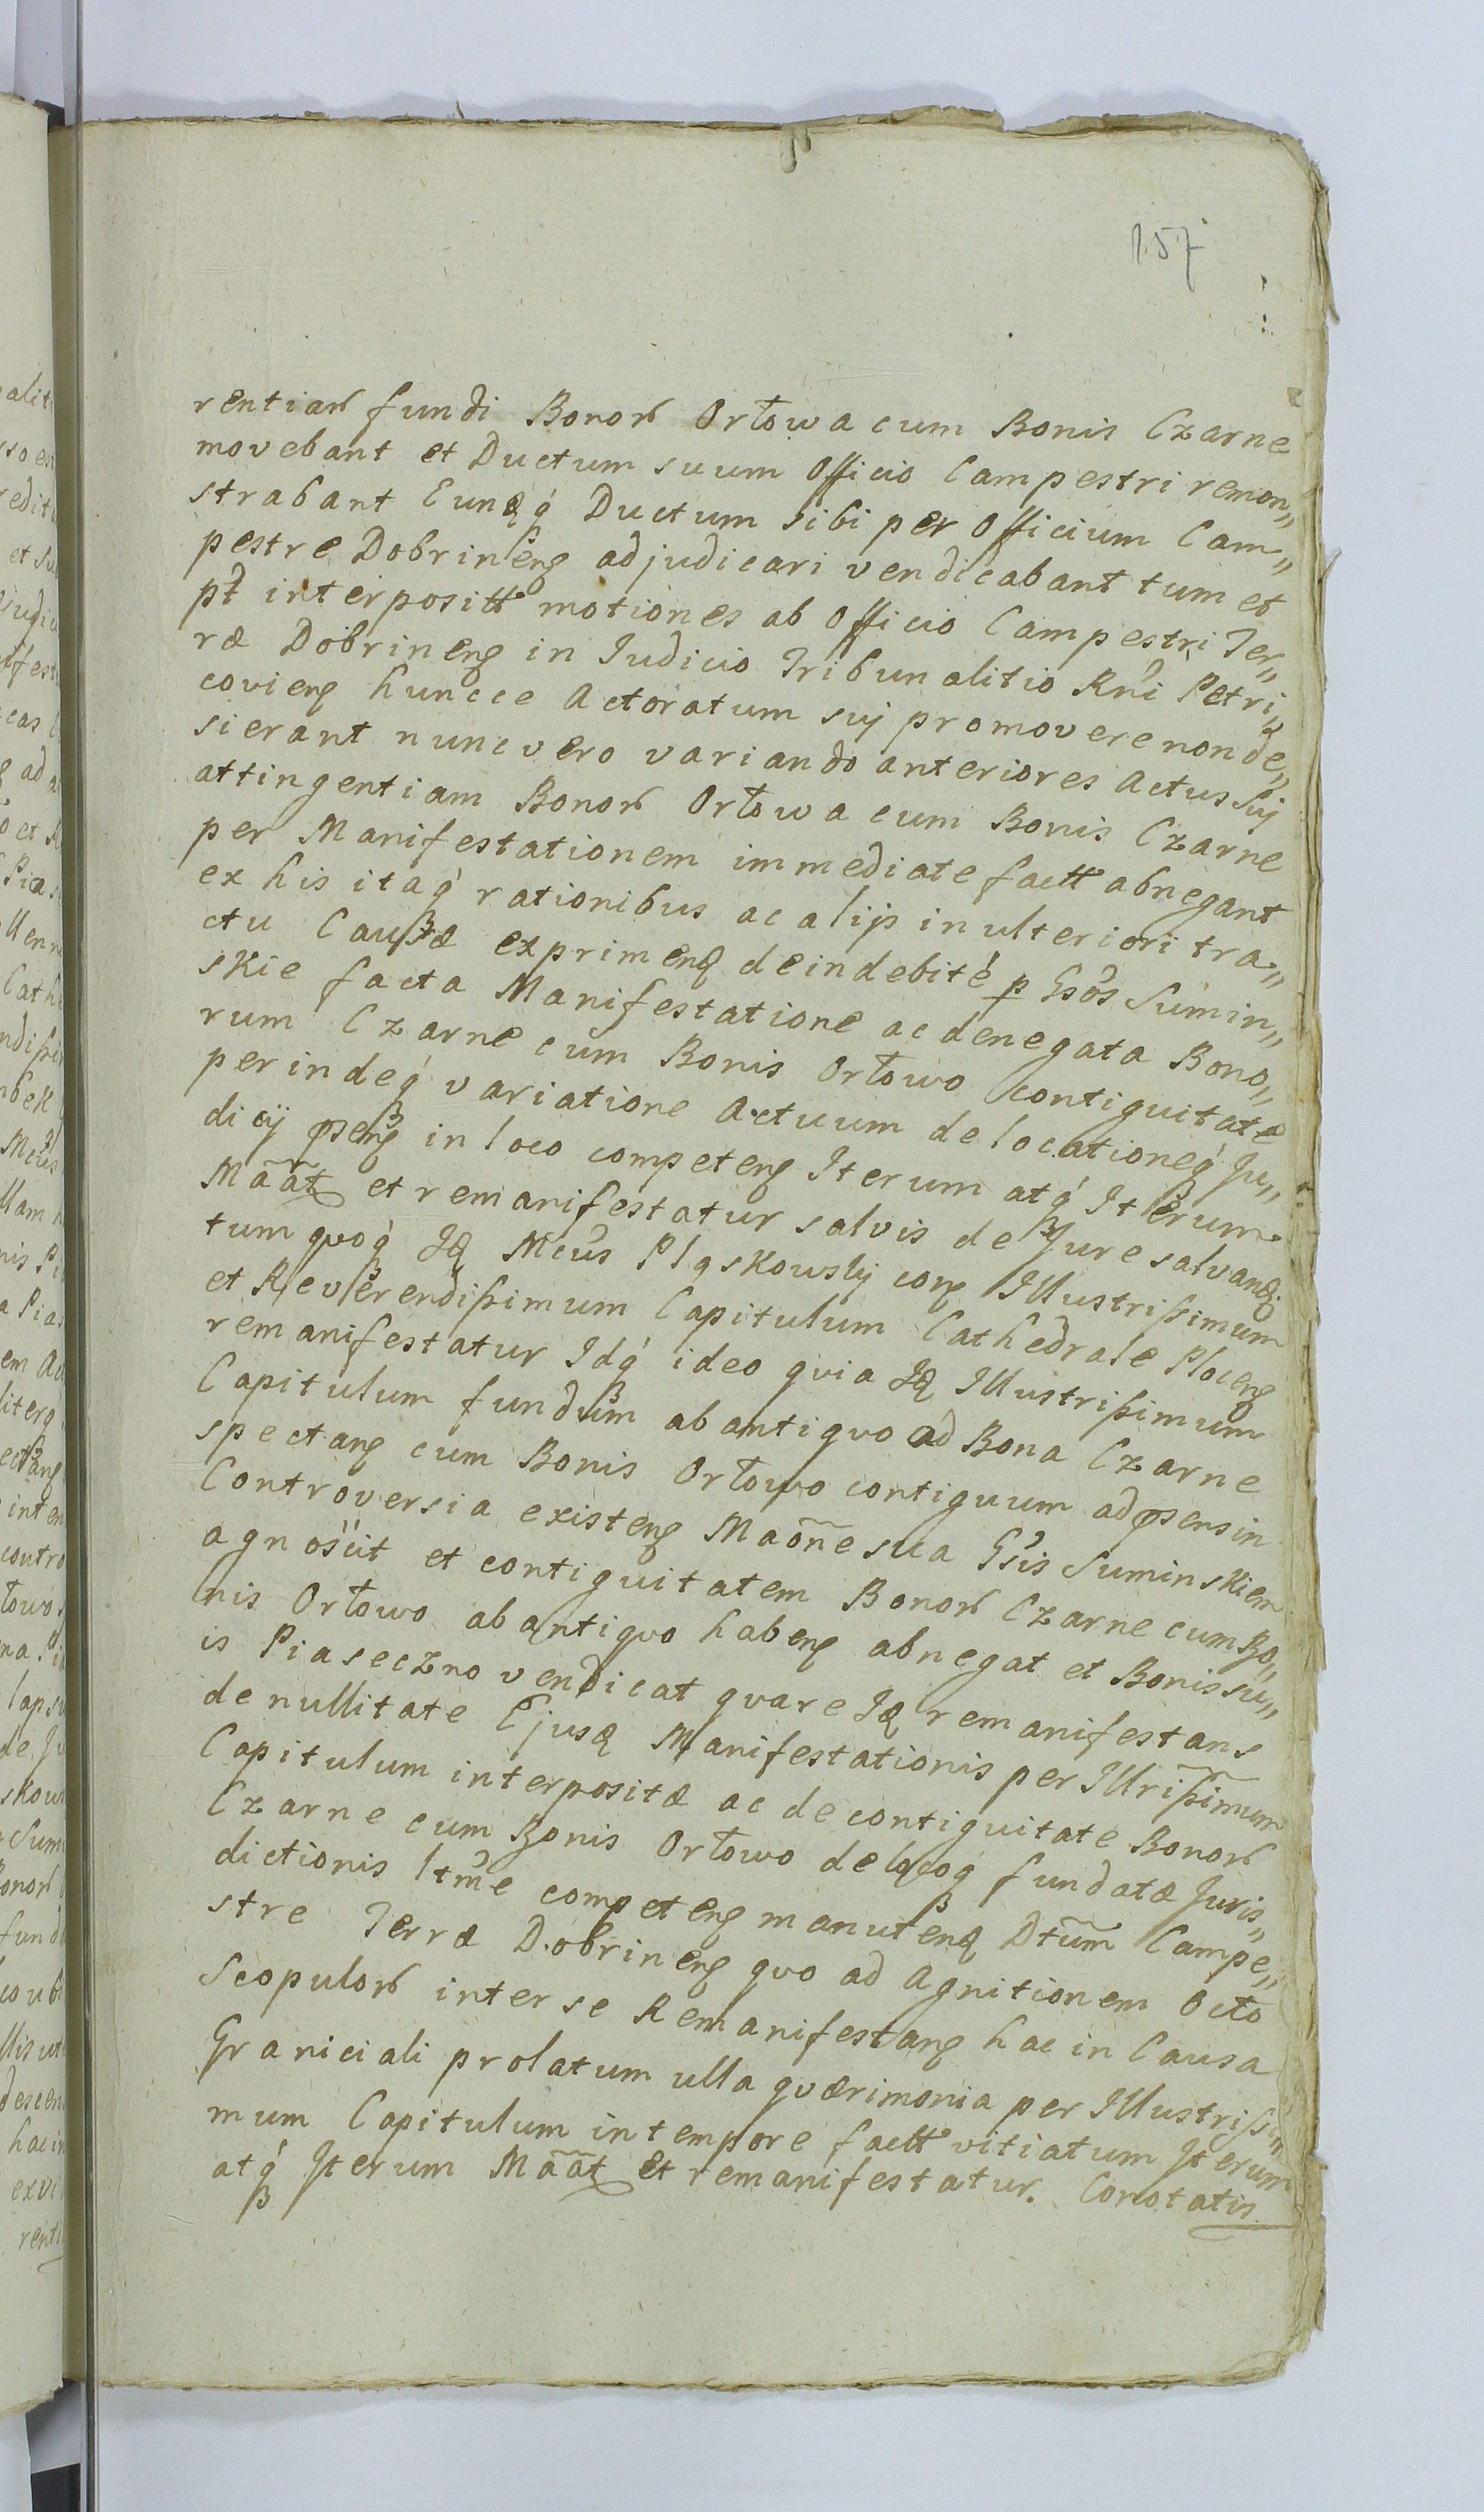 157
rentiaȝ fundi Bonoȝ Orłowa cum Bonis Czarne
movebant et Ductum suum Officio Campestri remon„
strabant Eunqꝫ Ductum sibi per Officium Cam„
pestre Dobrineng adjudicari vendicabant tum et
interposittº motiones ab Officio Campestri Ter„
ræ Dobrineng in Judicio Tribunalitio Rni Petri„
covieng huncce Actoratum sij promovere non de„
sierant nunc vero variando anteriores Actus suij
attingentiam Bonoȝ Orłowa cum Bonis Czarne
per Manifestationem immediate facttº abnegant
ex his itaq́ rationibus ac alijs in ulteriori tra„
ctu Causæ exprimenq deindebité p Gsos Sumin„
skie facta Manifestatione ac denegata Bono„
rum Czarne cum Bonis Orłowo contiguitate
perindeq́ variatione Actuum delocationeq́ Ju„
dicij pseng in loco competeng Iterum atq́ Iterum
Mãat et remanifestatur salvis de Jure salvandq
tum quoq́ Jq Mcus Pląskowskij cong Illustrißimum
et Reverendißimum Capitulum Cathedrale Ploceng
remanifestatur Idq́ ideo quia Jq Illustrißimum
Capitulum fundum ab antiquo ad Bona Czarne
spectang cum Bonis Orłowo contiguum ad psens in
Controversia existeng Maõne sua Gsis Suminskiem
agnoscit et contiguitatem Bonoȝ Czarne cum Bo„
nis Orłowo ab antiquo habeng abnegat et Bonis su„
is Piaseczno vendicat quare Jq remanifestans
de nullitate Ejusq Manifestationis per Illrißimum
Capitulum interpositæ ac de contiguitate Bonoȝ
Czarne cum Bonis Orłowo de locoq́ fundatæ Juris„
dictionis ltme competeng manutenq Dtum Campe„
stre Terræ Dobrineng quo ad Agnitionem Octo
Scopuloȝ inter se Remanifestang hac in Causa
Graniciali prolatum ulla quærimonia per Illustrißi„
mum Capitulum in tempore facttº vitiatum Iterum
atq́ Iterum Mãat et remanifestatur. Conotatis